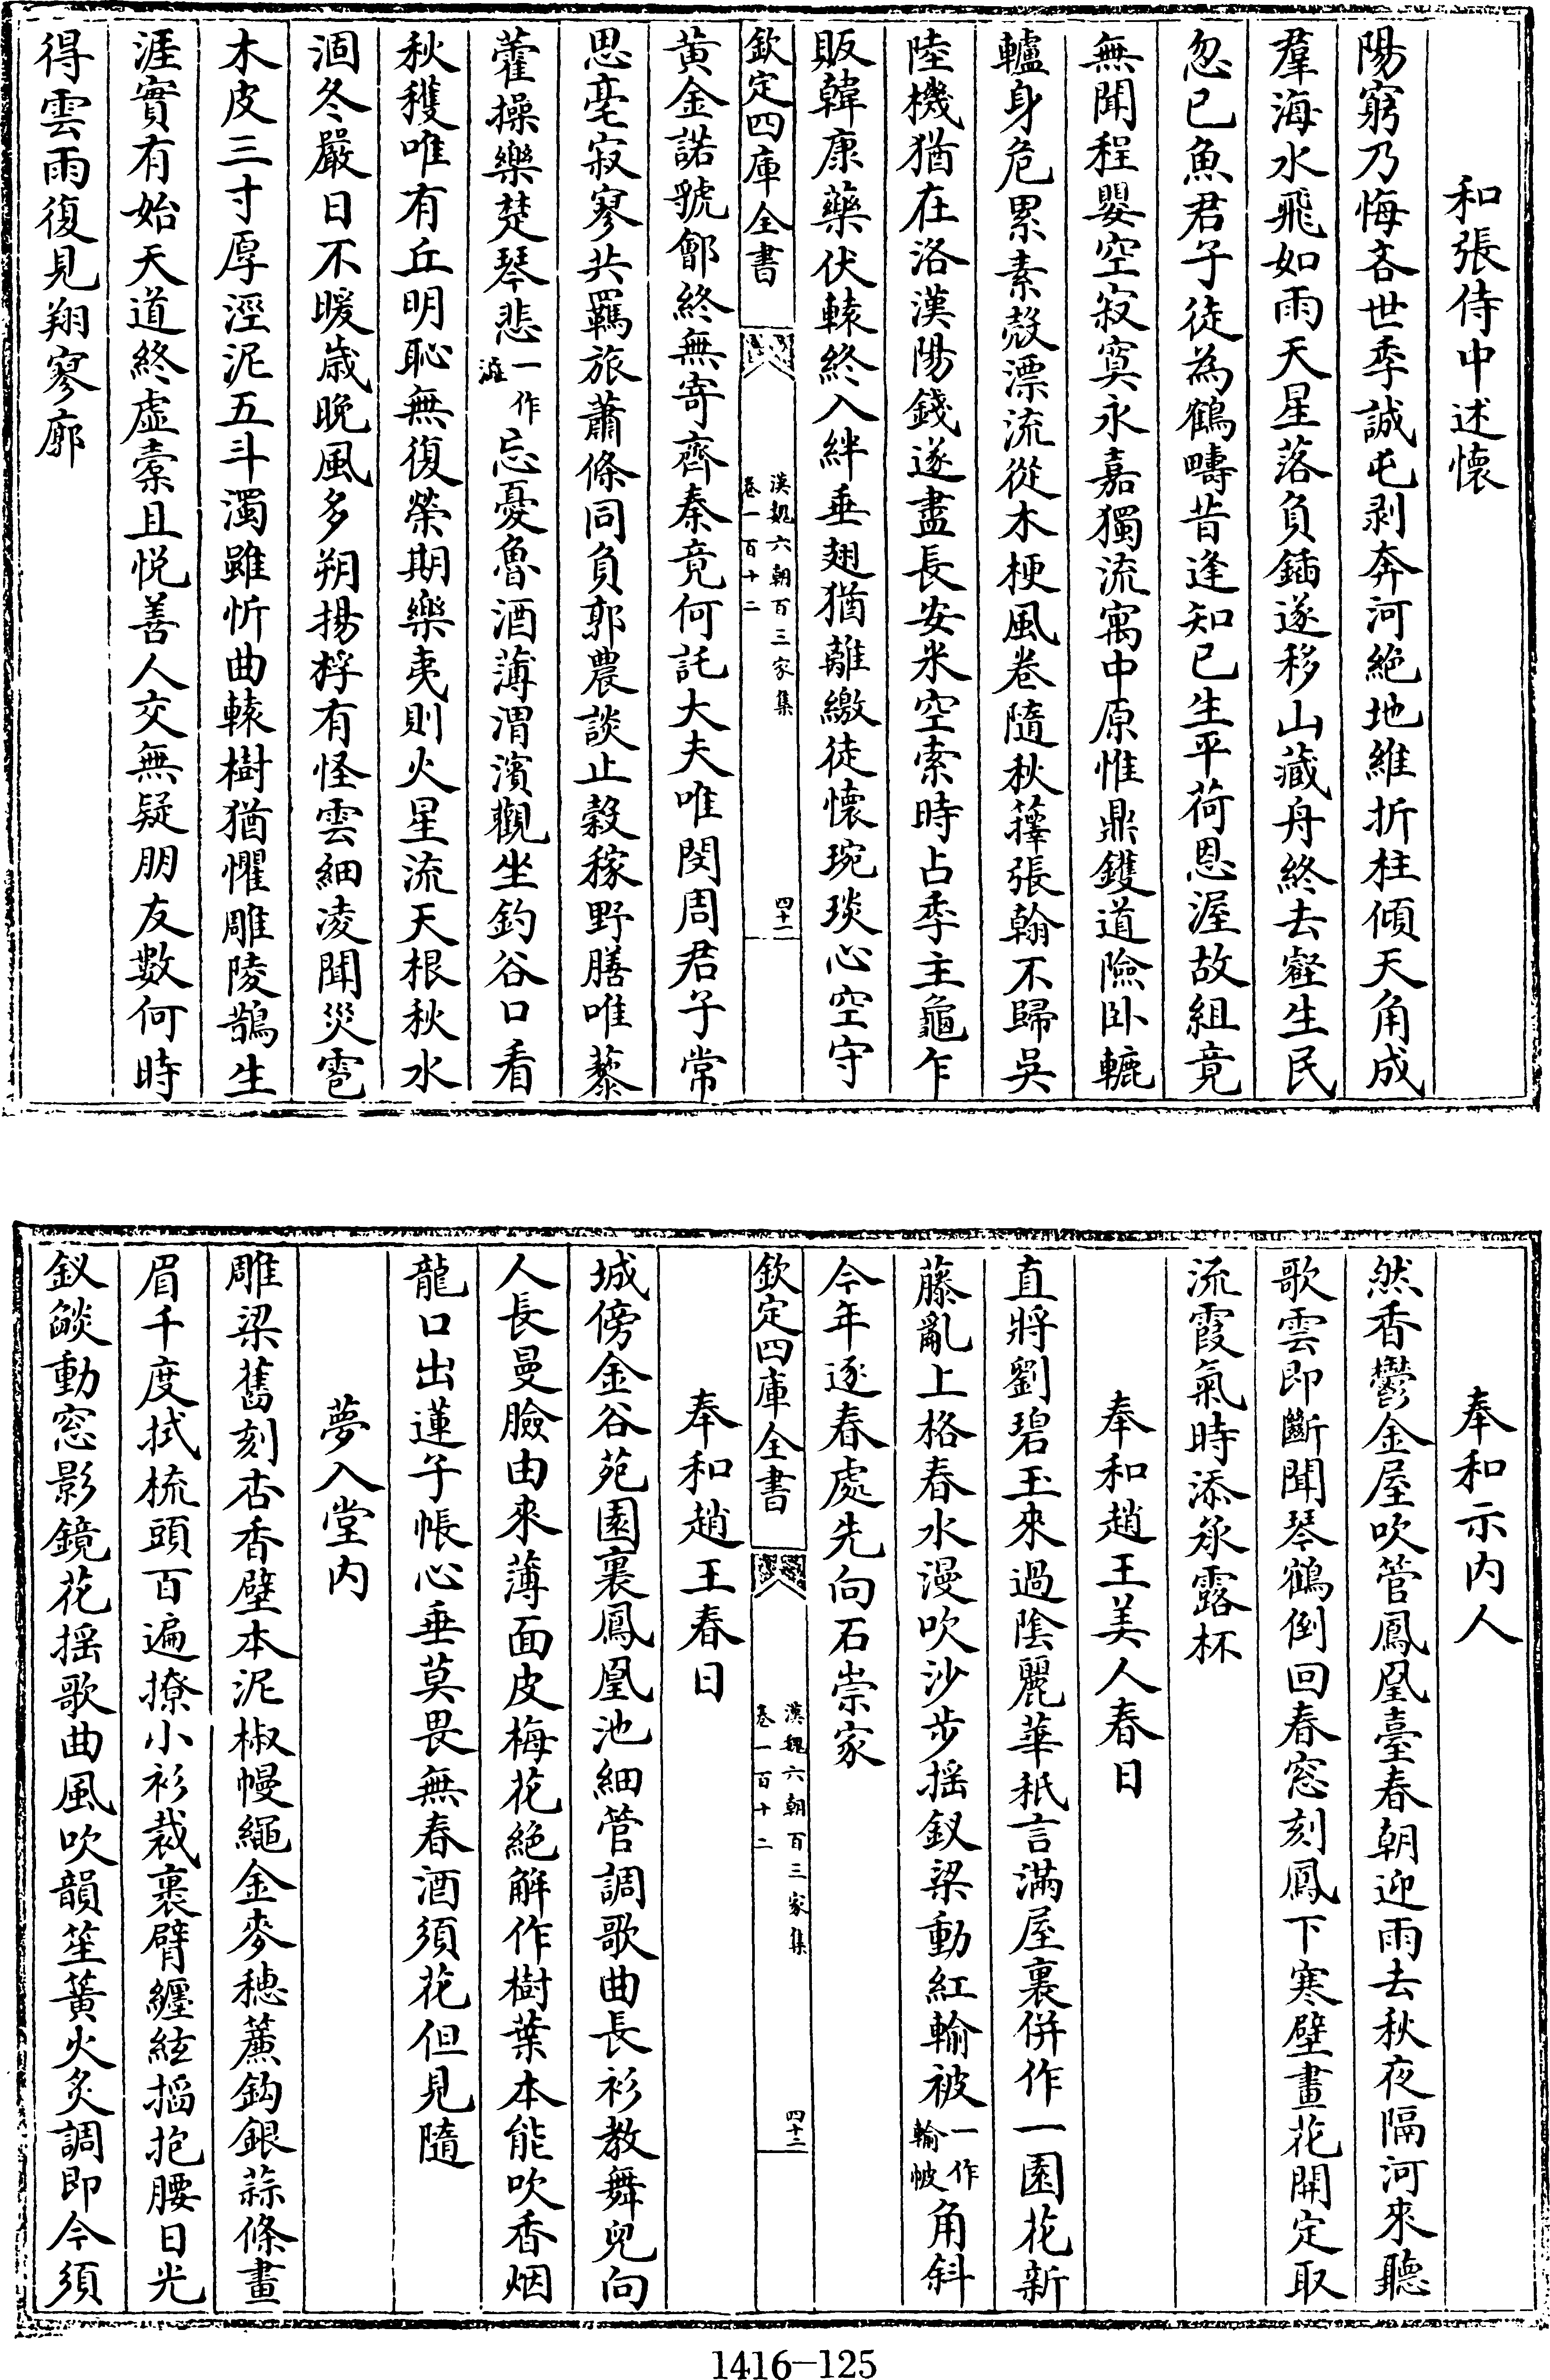 和張侍中述懷
陽窮乃悔吝世季誠屯剥奔河絶地維折柱傾天角成
羣海水飛如雨天星落負鍤遂移山藏舟終去壑生民
忽已魚君子徒為鶴疇昔逢知已生平荷恩渥故組竟
無聞程嬰空寂寞永嘉獨流寓中原惟鼎鑊道險卧轆
轤身危累素殻漂流從木梗風卷隨秋蘀張翰不歸吳
陸機猶在洛漢陽錢遂盡長安米空索時占季主龜乍
販韓康藥伏轅終入絆垂翅猶離繳徒懷琬琰心空守
欽定四庫全書
漢魏六朝百三家集
卷一百十二
四十一
黄金諾虢鄶終無寄齊秦竟何託大夫唯閔周君子常
思亳寂寥共羈旅蕭條同負郭農談止穀稼野膳唯藜
藿操樂楚琴悲一作滋忘憂魯酒薄渭濱觀坐釣谷口看
秋穫唯有丘明恥無復榮期樂夷則火星流天根秋水
涸冬嚴日不暖歲晚風多朔揚桴有怪雲細凌聞災雹
木皮三寸厚涇泥五斗濁雖忻曲轅樹猶懼雕陵鵲生
涯實有始天道終虛橐且悦善人交無疑朋友數何時
得雲雨復見翔寥廓
奉和示内人
然香鬱金屋吹管鳳凰臺春朝迎雨去秋夜隔河來聽
歌雲即斷聞琴鶴倒回春窓刻鳳下寒壁畫花開定取
流霞氣時添承露杯
奉和趙王美人春日
直將劉碧玉來過陰麗華秖言滿屋裏併作一園花新
藤亂上格春水漫吹沙步揺釵梁動紅輸被一作輸帔角斜
今年逐春處先向石崇家
欽定四庫全書
漢魏六朝百三家集
卷一百十二
四十二
奉和趙王春日
城傍金谷苑園裏鳳凰池細管調歌曲長衫教舞兒向
人長曼臉由來薄面皮梅花絶解作樹葉本能吹香烟
龍口出蓮子帳心垂莫畏無春酒須花但見隨
夢入堂内
雕梁舊刻杏香壁本泥椒幔繩金麥穗簾鈎銀蒜條畫
眉千度拭梳頭百遍撩小衫裁裹臂纒絃搯抱腰日光
釵燄動窓影鏡花揺歌曲風吹韻笙簧火炙調即今須
1416-125